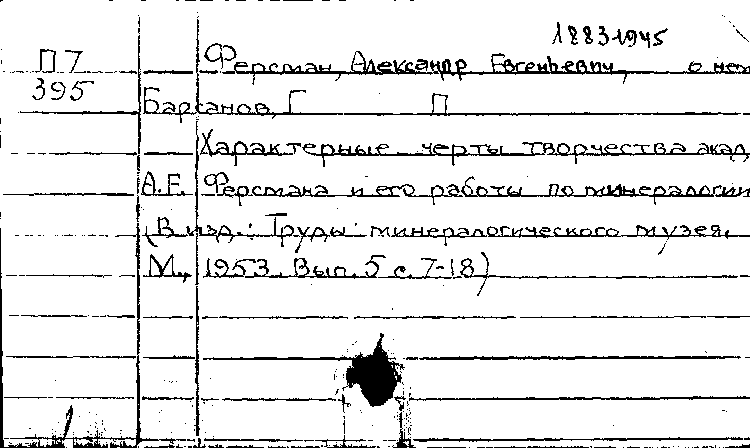 1883-1945
П 7 Ферсман, Александр Евгеньевич, о нем
395
Барсанов, Г П
Характерные черты творчества акад
А.Е. Ферсмана и его работы по минералогии
(В изд.: Труды минералогического музея.
М., 1953. Вып. 5 с. 7-18)